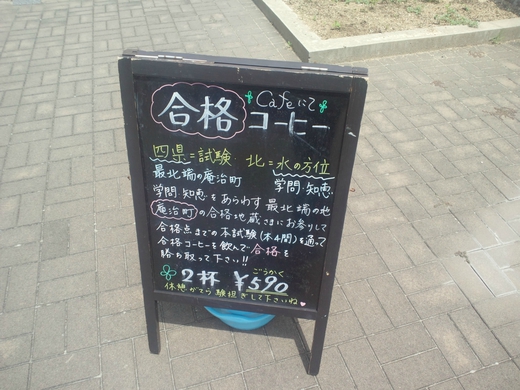 合格 Cafeにて
コーヒー
四県=試験・北=水の方位
最北端の庵治町 学問・知恵
学問・知恵をあらわす最北端の地
庵治町の合格地蔵さまにお参りして
合格点までの本試験(本4関)を通って
合格コーヒーを飲んで合格を
勝ち取って下さい!!
ごうかく
2杯 ¥590
休憩がてら験担ぎして下さいね